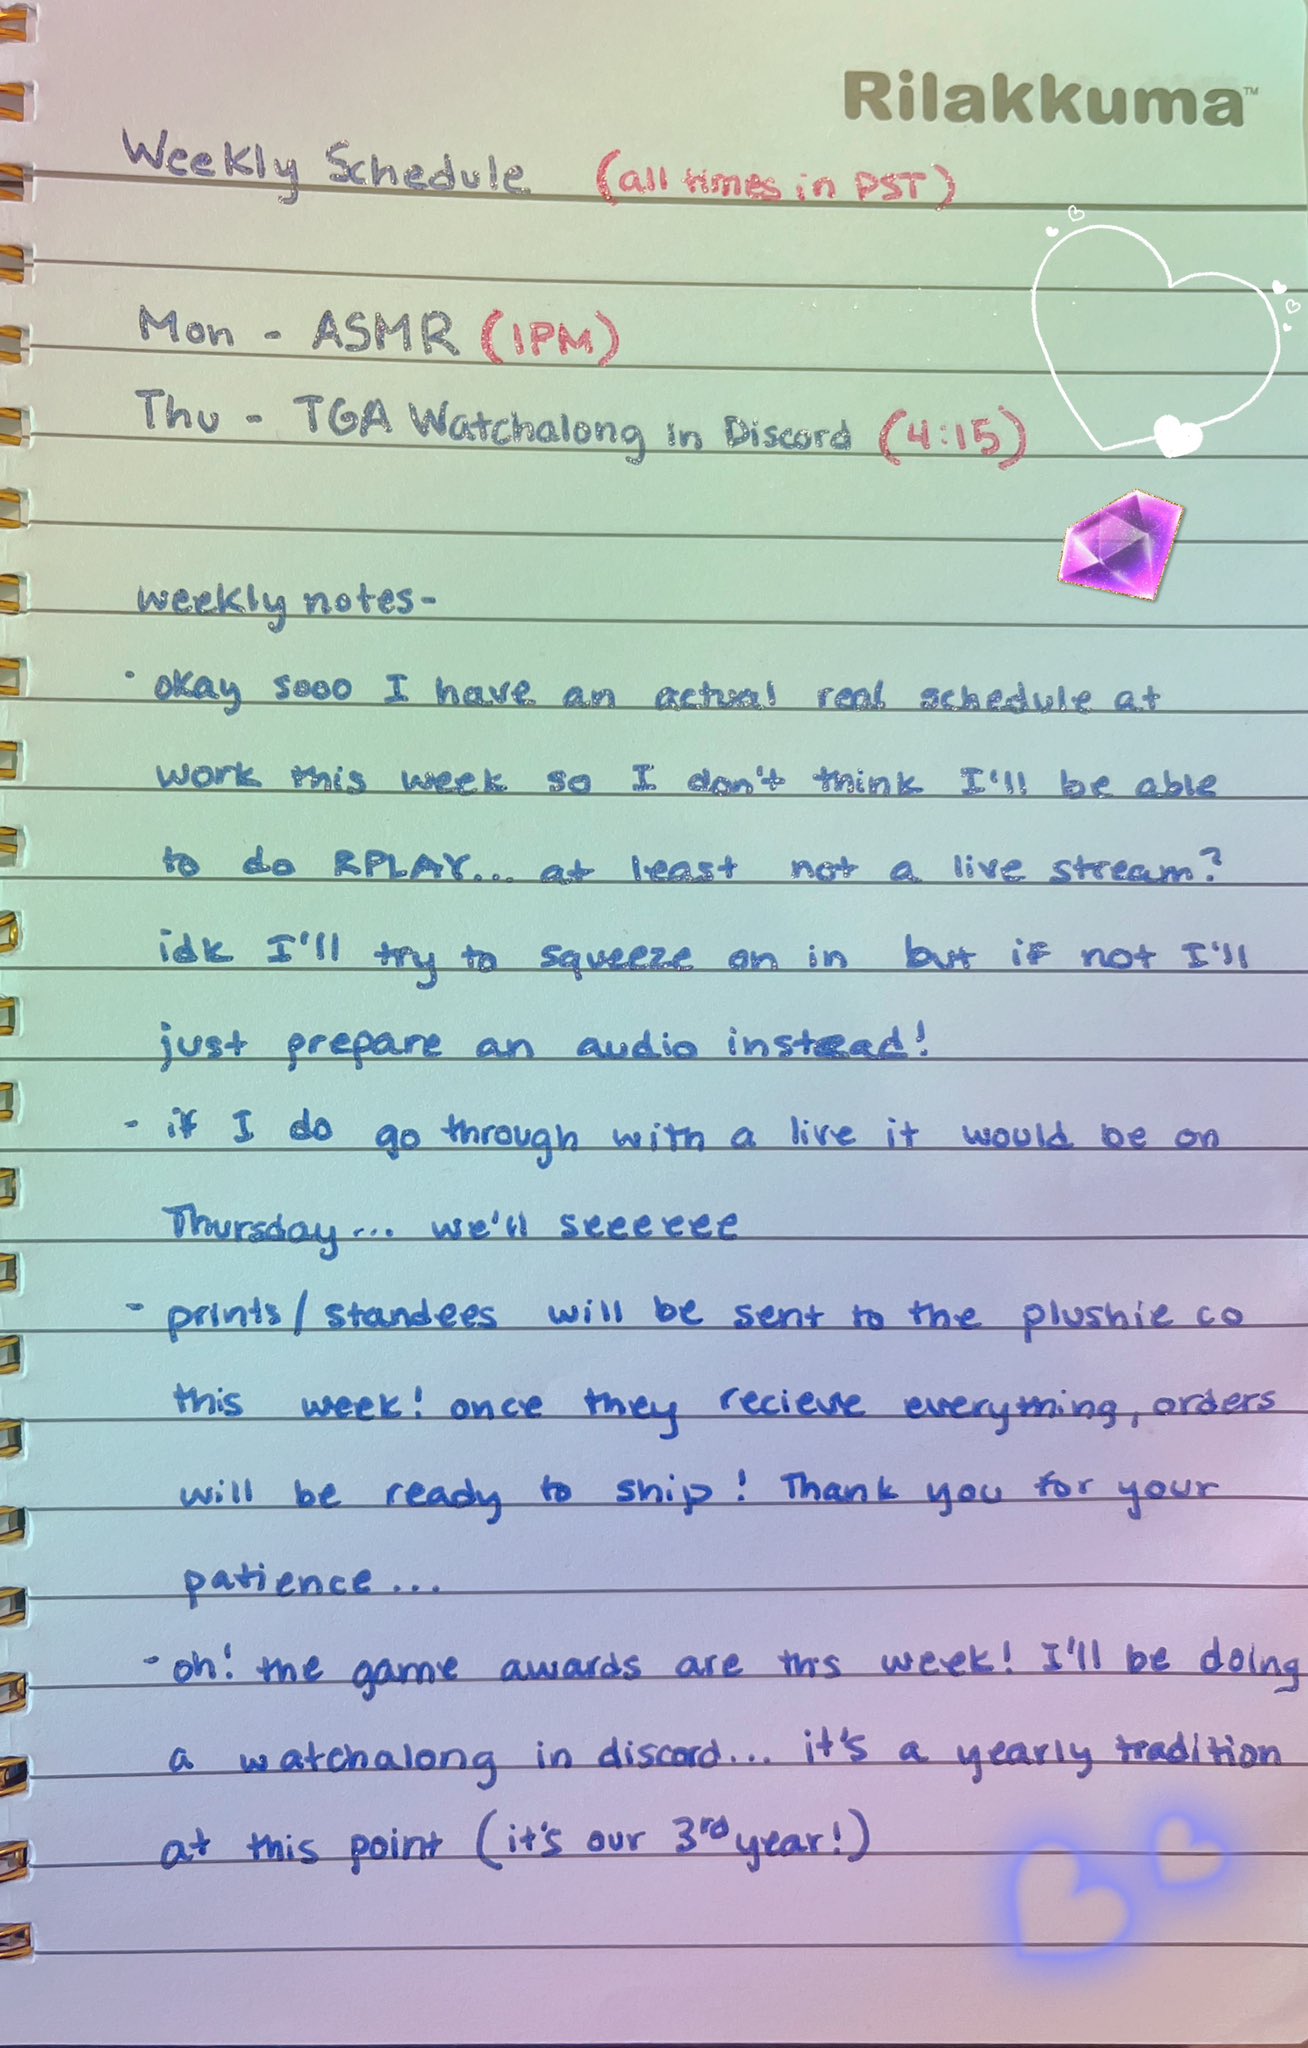 Rilakkuma™
Weekly Schedule (all times in PST)
Mon - ASMR (1PM)
Thu - TGA Watchalong in Discord (4:15)
weekly notes-
· okay sooo I have an actual real schedule at
work this week so I don't think I'll be able
to do RPLAY... at least not a live stream?
idk I'll try to squeeze on in but if not I'll
just prepare an audio instead!
- if I do go through with a live it would be on
Thursday... we'll seeeeee
- prints/standees will be sent to the plushie co
this week! once they recieve everything, orders
will be ready to ship! Thank you for your
patience...
- oh! the game awards are this week! I'll be doing
a watchalong in discord... it's a yearly tradition
at this point (it's our 3rd year!)